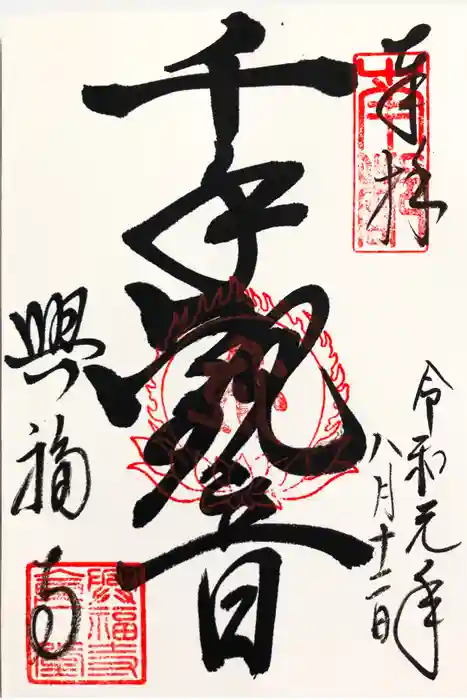 奉拝
令和元年
八月十二日
千手観音
興福寺
興福寺